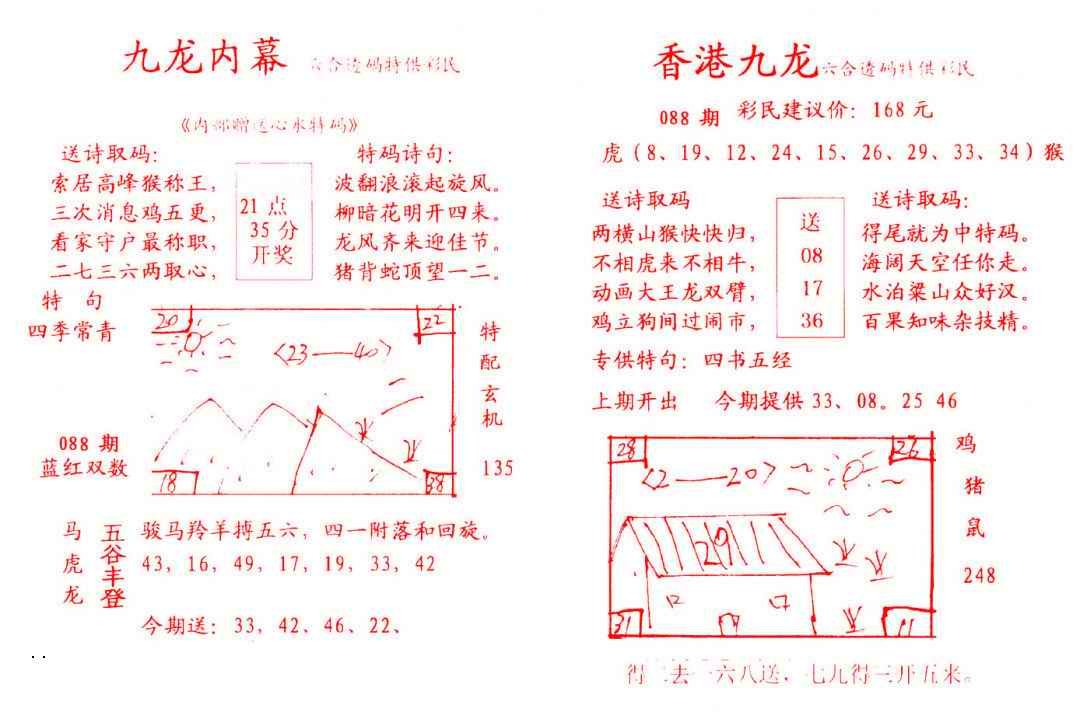 九龙内幕 六合透码特供彩民
《内部赠送心水特码》
送诗取码：
索居高峰猴称王，
三次消息鸡五更，
看家守户最称职，
二七三六两取心，
21 点
35 分
开奖
特码诗句：
波翻浪滚起旋风。
柳暗花明开四来。
龙风齐来迎佳节。
猪背蛇顶望一二。
特 句
四季常青
088 期
蓝红双数
20
22
〈23——40〉
18
38
特
配
玄
机
135
马
虎
龙
五谷丰登
骏马羚羊搏五六，四一附落和回旋。
43，16，49，17，19，33，42
今期送：33，42、46、22、
香港九龙 六合透码特供彩民
088 期 彩民建议价：168 元
虎（8、19、12、24、15、26、29、33、34）猴
送诗取码
两横山猴快快归，
不相虎来不相牛，
动画大王龙双臂，
鸡立狗间过闹市，
送
08
17
36
送诗取码：
得尾就为中特码。
海阔天空任你走。
水泊梁山众好汉。
百果知味杂技精。
专供特句：四书五经
上期开出 今期提供 33、08。25 46
28
26
〈2——20〉
29
31
11
鸡
猪
鼠
248
得二去一六八送，七九得三开五来。